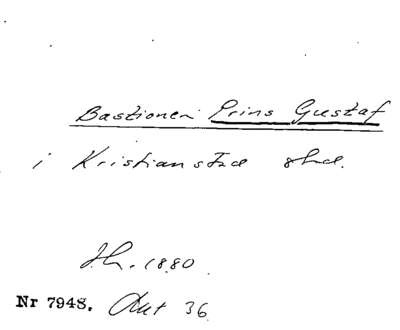 Bastionen Prins Gustaf
i Kristianstad stad.
J.h. 1880.
Nr 7948. Okt 36